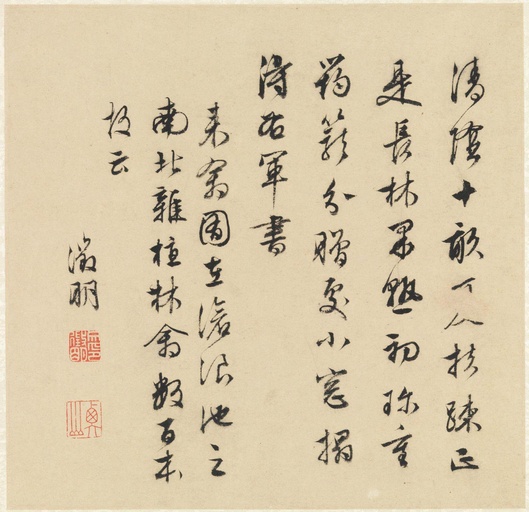 清陰十畝夏扶疎正
是長林果熟初珍重
筠籠分贈處小窗搨
得右軍書
來禽囿在滄浪池之
南北雜植林禽數百本
故云
徵明